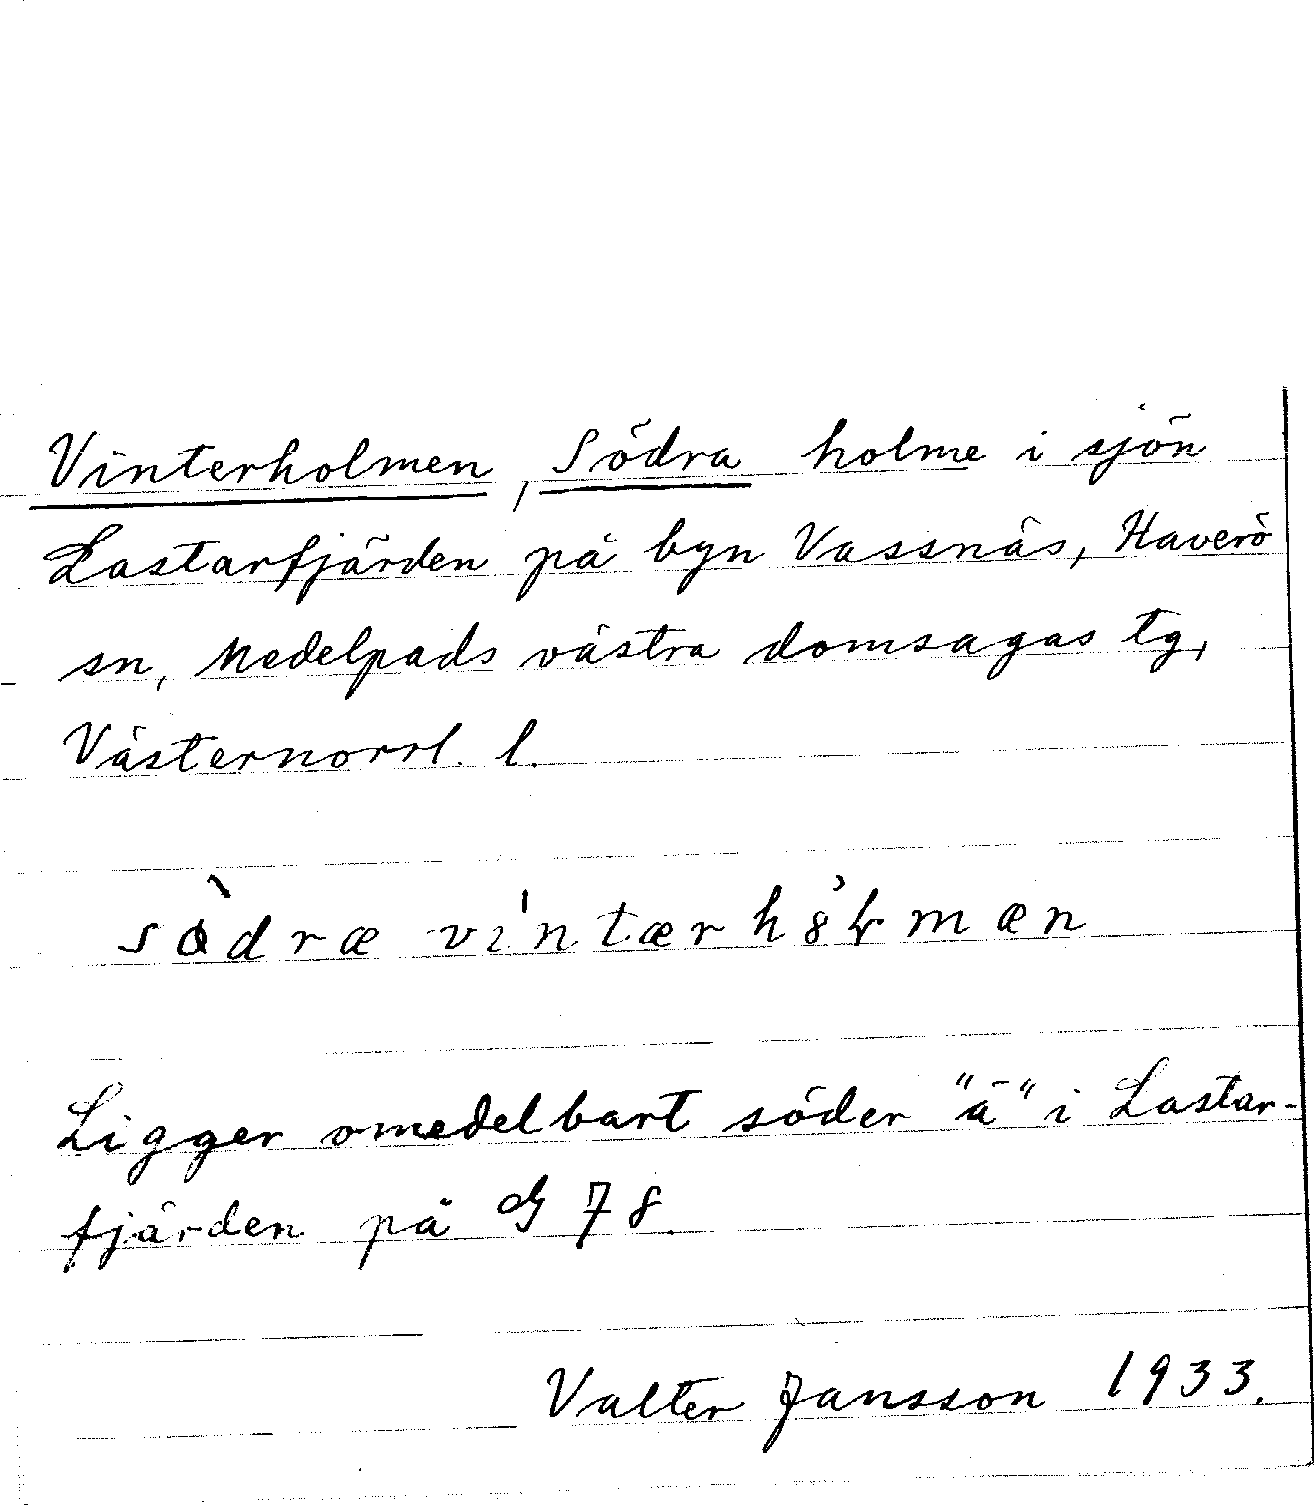 Vinterholmen, Södra holme i sjön
Lastarfjärden på byn Vassnäs, Haverö
sn, Medelpads västra domsagas tg,
Västernorrl. l.
södræ vintærhålmæn
Ligger omedelbart söder "ä" i Lastar-
fjärden på G 78.
Valter Jansson 1933.